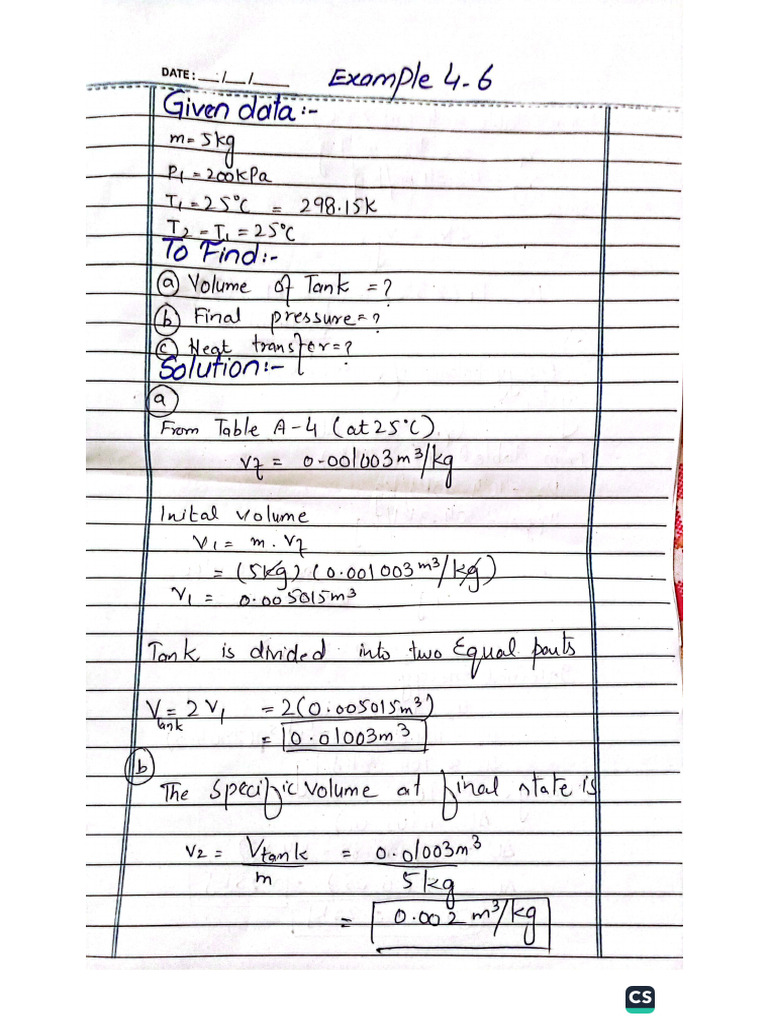 DATE: __/__/____ Example 4.6
Given data:-
m = 5kg
P1 = 200kPa
T1 = 25°C = 298.15K
T2 = T1 = 25°C
To Find:-
(a) Volume of Tank = ?
(b) Final pressure = ?
(c) Heat transfer = ?
Solution:-
(a)
From Table A-4 (at 25°C)
vf = 0.001003m³/kg
Inital volume
V1 = m . vf
= (5kg) (0.001003 m³/kg)
V1 = 0.005015m³
Tank is divided into two Equal parts
Vtank = 2 V1 = 2(0.005015m³)
= 0.01003m³
(b)
The specific volume at final state is
v2 = Vtank / m = 0.01003m³ / 5kg
= 0.002 m³/kg
CS